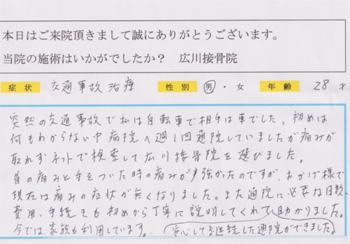 本日はご来院頂きまして誠にありがとうございます。
当院の施術はいかがでしたか？ 広川接骨院
症状 交通事故治療 性別 男・女 年齢 28才
突然の交通事故で私は自転車で相手は車でした。初めは
何もわからない中病院へ週1回通院していましたが痛みが
取れずネットで検索して広川接骨院を選びました。
首の痛みと手をついた時の痛みが多強かたのですが、おかげ様で
現在は痛みの症状が無くなりました。また通院に必要な日数、
費用、手続きも初めから丁寧に説明してくれて助かりました。
今では家族も利用しています。(安心して継続した通院ができました)